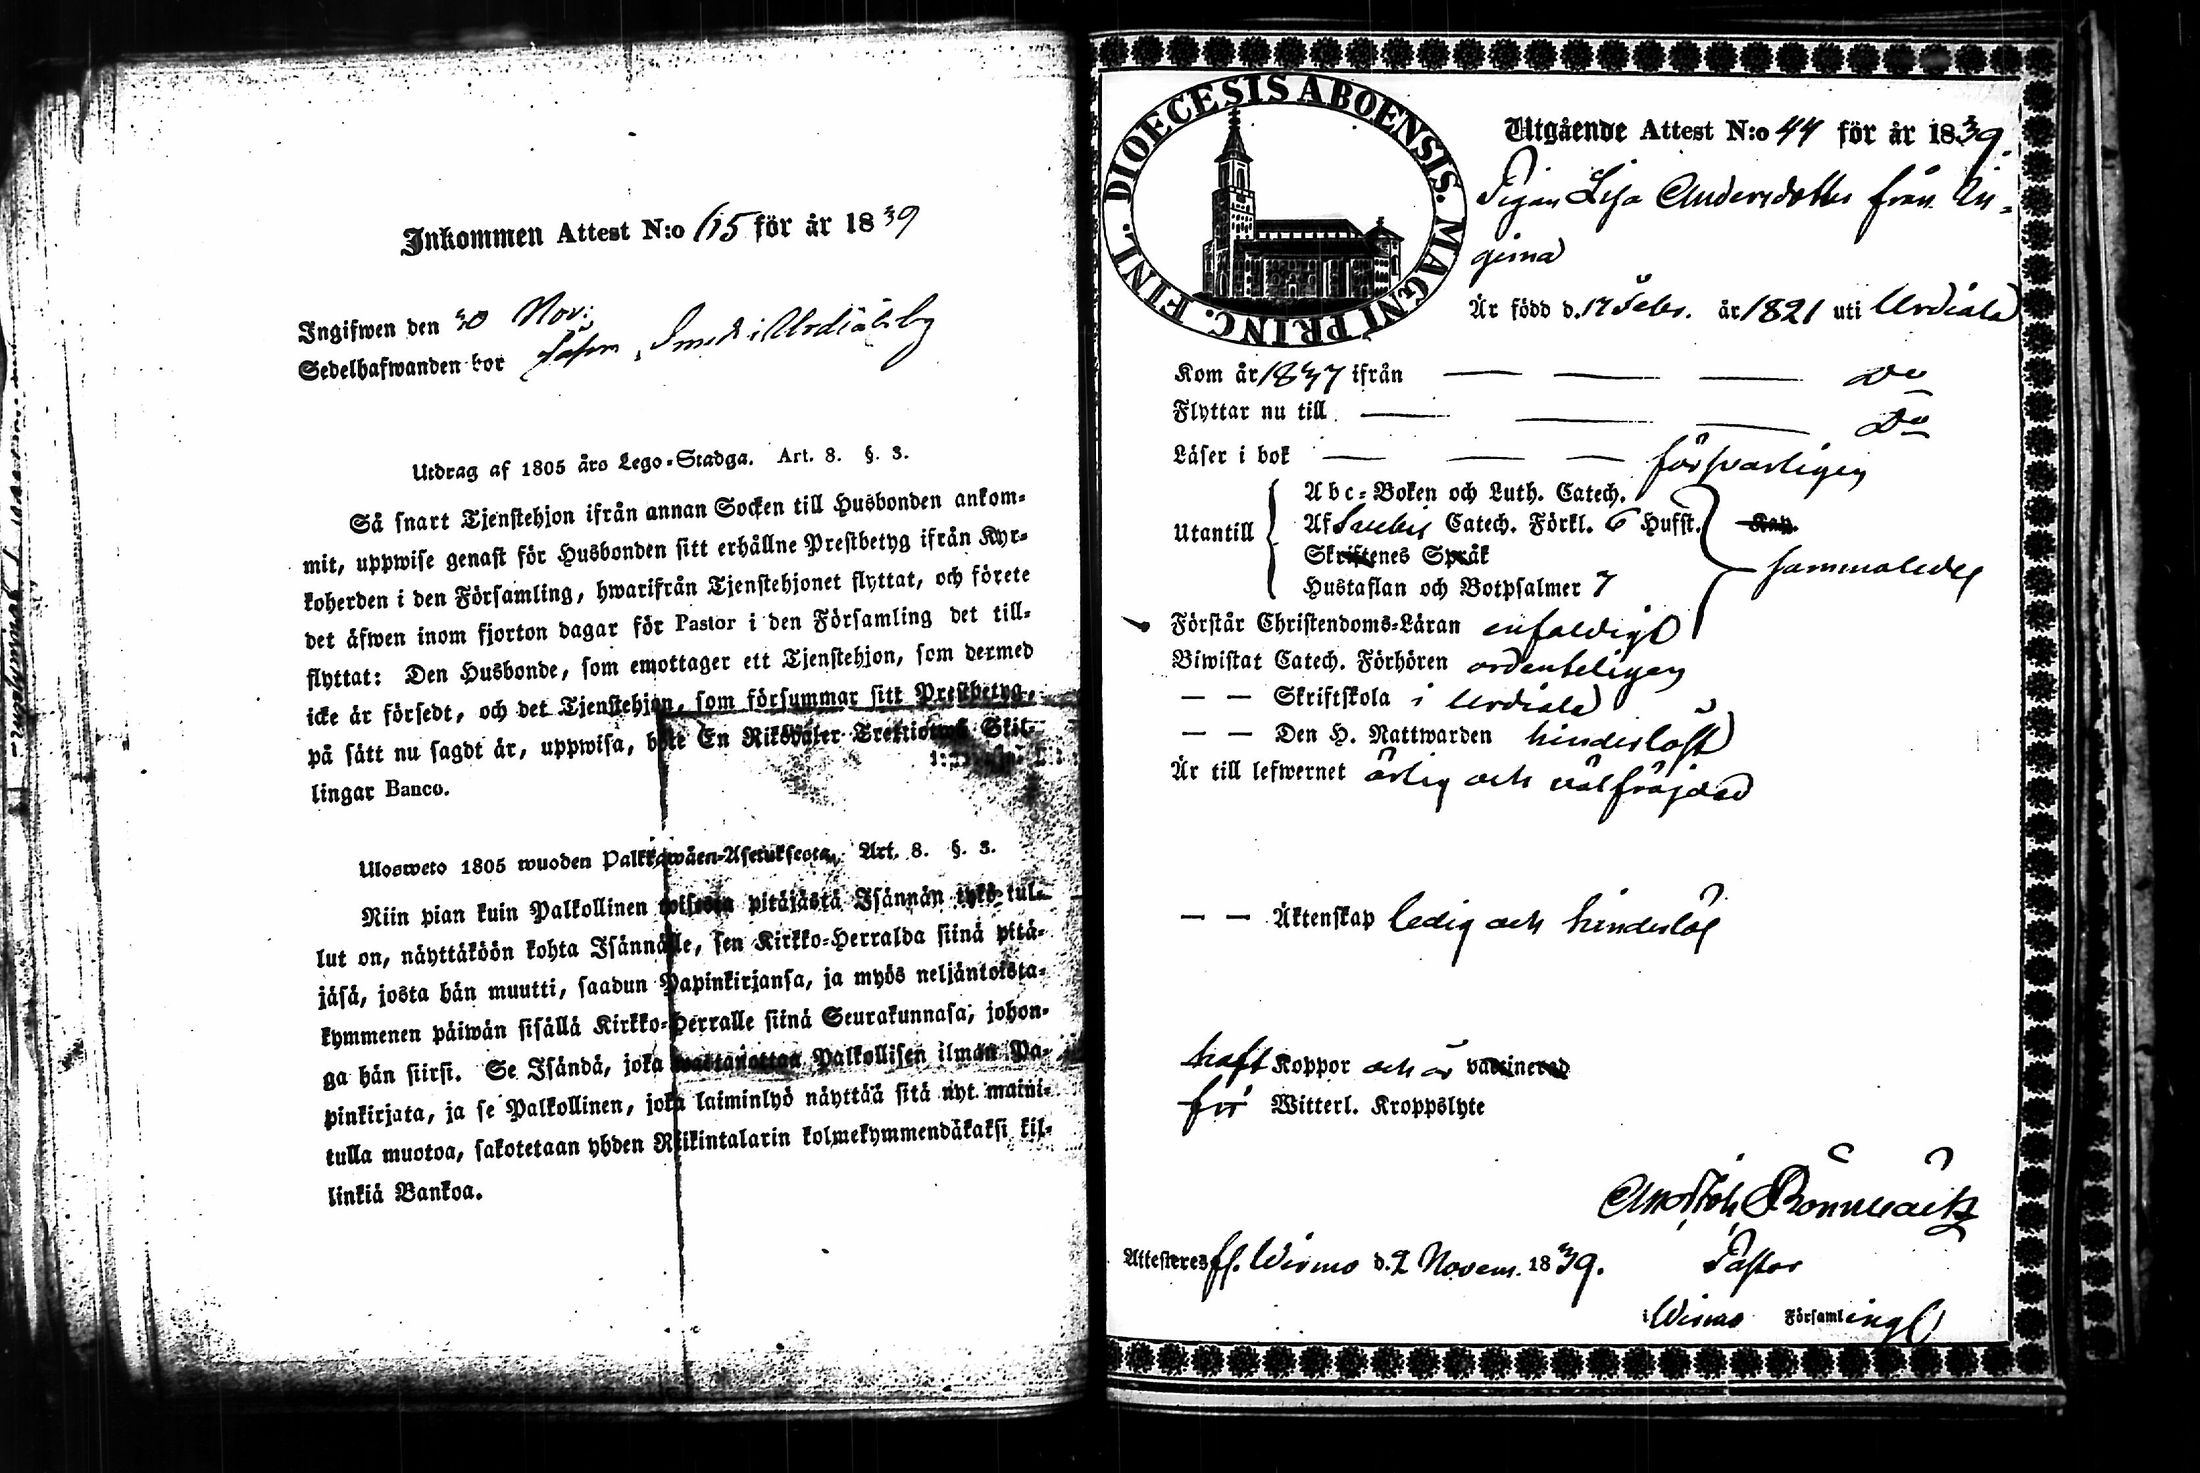 Inkommen Attest N:o 615 för år 1839
Ingifwen den 30 Nov:
Sedelhafwanden bor
Utdrag af 1805 års Lego-Stadga. Art. 8. §. 3.
Så snart Tjenstehjon ifrån annan Socken till Husbonden ankom-
mit, uppwise genast för Husbonden sitt erhållne Prestbetyg ifrån Kyr-
koherden i den Församling, hwarifrån Tjenstehjonet flyttat, och förete
det äfwen inom fjorton dagar för Pastor i den Församling det till-
flyttat: Den Husbonde, som emottager ett Tjenstehjon, som dermed
icke är försedt, och det Tjenstehjon, som försummar sitt Prestbetyg,
på sätt nu sagdt är, uppwisa, böte En Riksdaler Trettiotwå Skil-
lingar Banco.
Ulosweto 1805 wuoden Palkkawäen-Asetuksesta, Art. 8. §. 3.
Niin pian kuin Palkollinen toisesta pitäjästä Isännän tykö tul-
lut on, näyttäköön kohta Isännälle, sen Kirkko-Herralda siinä pitä-
jäsä, josta hän muutti, saadun Papinkirjansa, ja myös neljäntoista-
kymmenen päiwän sisällä Kirkko-Herralle siinä Seurakunnasa, johon-
ga hän siirsi. Se Isändä, joka wastanottaa Palkollisen ilman Pa-
pinkirjata, ja se Palkollinen, joka laiminlyö näyttää sitä nyt maini-
tulla muotoa, sakotetaan yhden Riikintalarin kolmekymmendäkaksi kil-
linkiä Bankoa.
DIOECESIS ABOENSIS. MAGNI PRINC. FINL.
Utgående Attest N:o 44 för år 1839.
Pigan Lisa Andersdotter från
Är född d. 17 Febr. år 1821 uti Urdiala
Kom år 1837 ifrån — — — Do
Flyttar nu till — — — Do
Läser i bok — — — försvarligen
Utantill
Abc-Boken och Luth. Catech.
Af Svebis Catech. Förkl. 6 Hufst. Kap.
Skriftenes Språk
Hustaflan och Botpsalmer 7
sammaledes
Förstår Christendoms-Läran enfaldigt
Biwistat Catech. Förhören ordenteligen
— — Skriftskola i Urdiala
— — Den H. Nattwarden hinderslöst
Är till lefwernet ärlig och välfräjdad
— — Äktenskap ledig och hinderslös
haft Koppor och är vaccinerad
fri Witterl. Kroppslyte
Pastor
Attesteres ff. Wirmo d. 2 Novem. 1839.
i Wirmo Församling